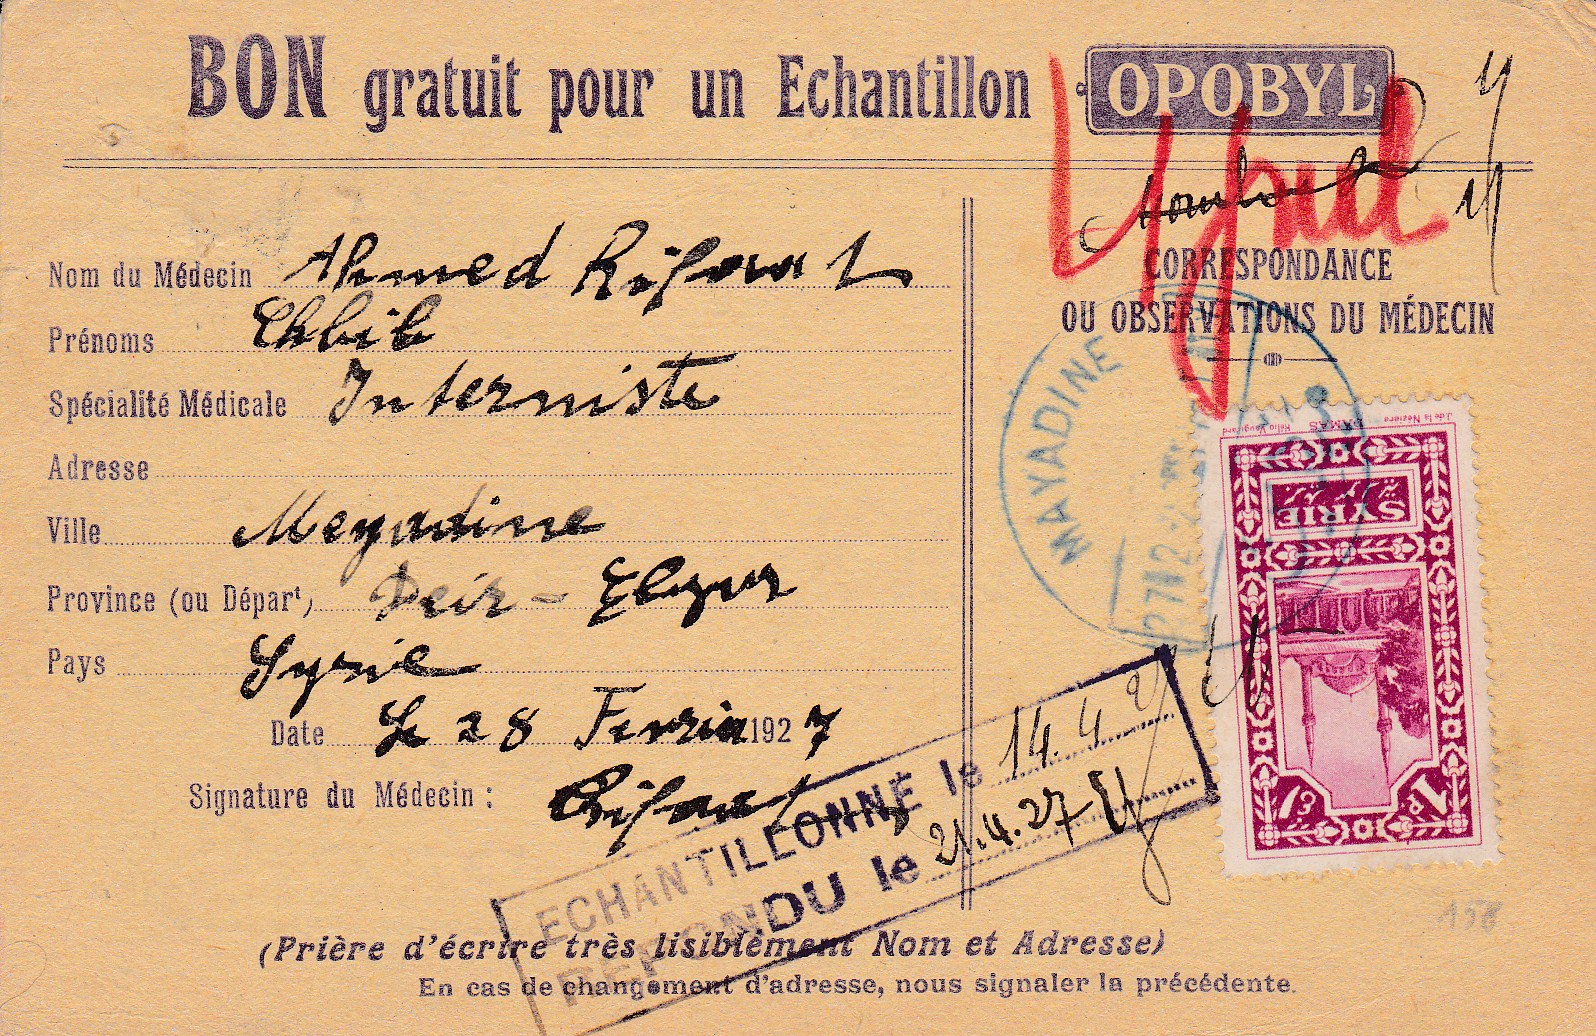 BON gratuit pour un Echantillon OPOBYL
Nom du Médecin Ahmed Rifaat
Prénoms Chbib
Spécialité Médicale Interniste
Adresse
Ville Meyadine
Province (ou Départ,) Deir-Elzur
Pays Syrie
Date Le 28 Fevrier 1927
Signature du Médecin : Rifaat
CORRESPONDANCE
OU OBSERVATIONS DU MÉDECIN
MAYADINE
J. de la Nézière Hélio Vaugirard
DAMAS
SYRIE
1 P.
ECHANTILLONNÉ le 14.4
RÉPONDU le 21.4.27
(Prière d'écrire très lisiblement Nom et Adresse)
En cas de changement d'adresse, nous signaler la précédente.
158